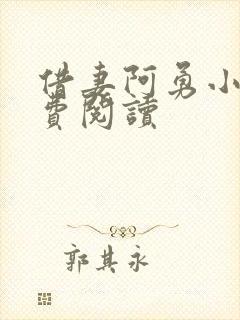 借妻阿勇小
費閱讀
郭其永